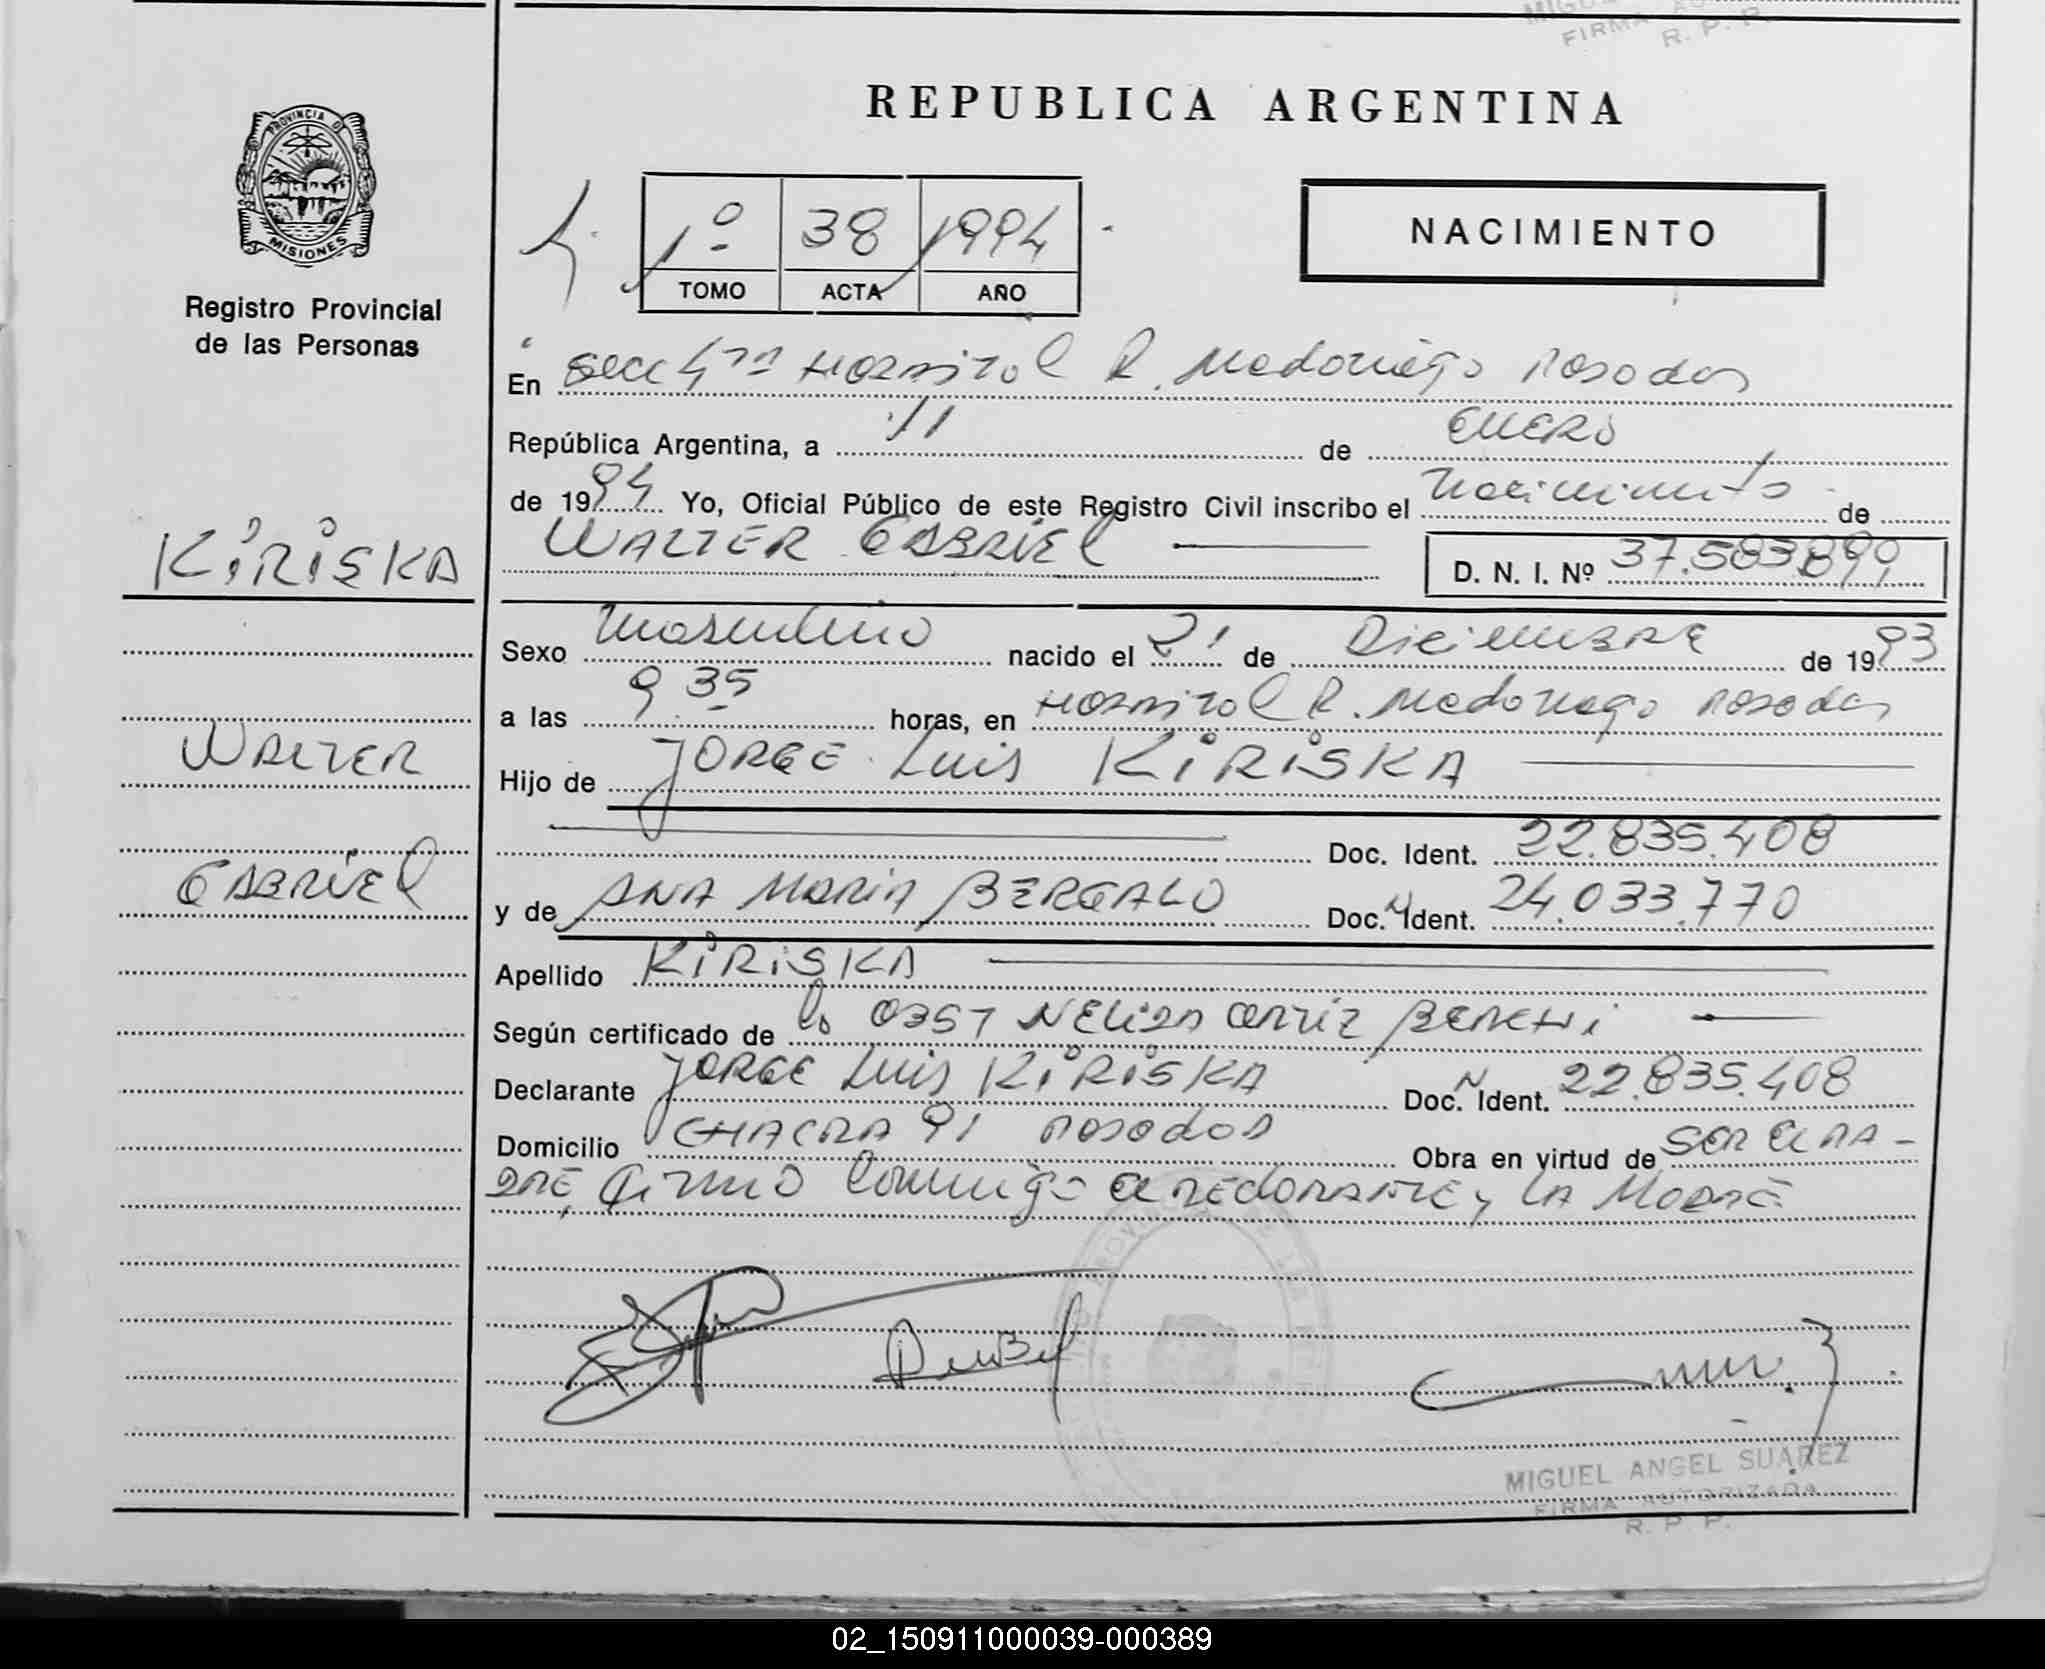 MIGU
FIRMA AU
R. P. P.
PROVINCIA DE
MISIONES
Registro Provincial
de las Personas
REPUBLICA ARGENTINA
NACIMIENTO
1º 38 1994
TOMO ACTA AÑO
En Secc 4ta Hospital R. Madariaga Posadas
República Argentina, a 11 de Enero
de 1994 Yo, Oficial Público de este Registro Civil inscribo el Nacimiento de
KIRISKA
WALTER GABRIEL D. N. I. Nº 37.583.899
Sexo Masculino nacido el 21 de Diciembre de 1993
a las 9 35 horas, en Hospital R. Madariaga Posadas
WALTER
Hijo de JORGE Luis KIRISKA
Doc. Ident. 22.835.408
GABRIEL
y de ANA MARIA BERGALO Doc. N Ident. 24.033.770
Apellido KIRISKA
Según certificado de la OBST NELIDA ORTIZ
Declarante JORGE Luis KIRISKA Doc. N Ident. 22.835.408
Domicilio CHACRA 91 POSADAS Obra en virtud de SER EL PA-
DRE, Firmó Conmigo el y LA MADRE
MIGUEL ANGEL SUAREZ
FIRMA AUTORIZADA
R. P. P.
02_150911000039-000389